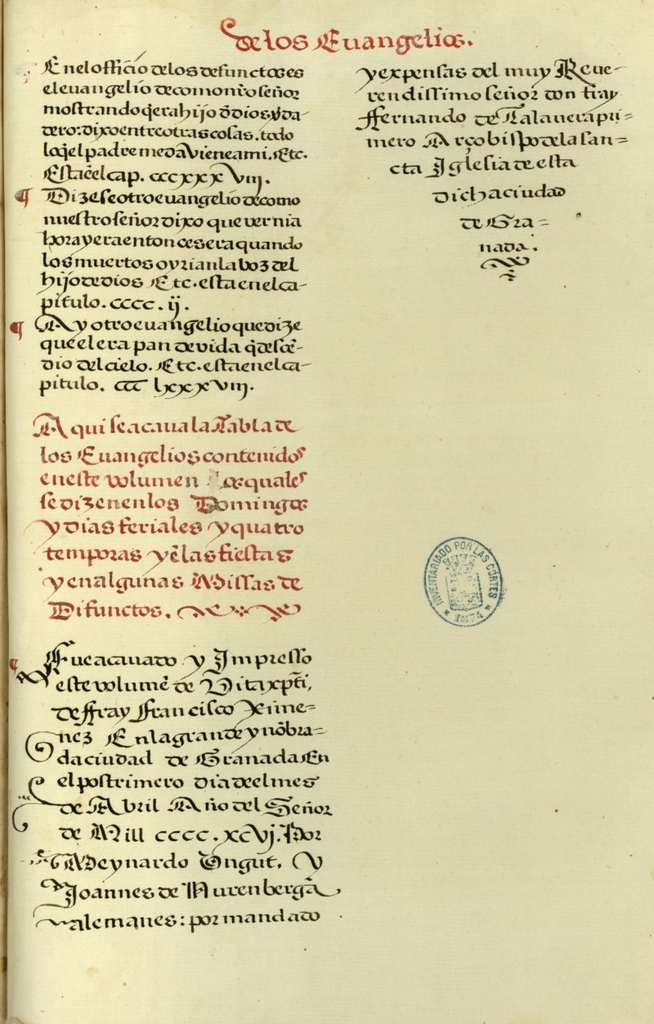 de los Euangelios.
En el officio de los defunctos es
el euangelio de como nr̃o señor
mostrando q̃ era hijo d̃ dios y v̉da
dero: dixo entre otras cosas. todo
lo q̃ el padre me da Viene a mi. Etc.
Esta eñl cap. cccxxxViij.
¶ Dizese otro euangelio de como
nuestro señor dixo que vernia
hora y era entonces era quando
los muertos oyrian la boz del
hijo de dios Etc. esta en el ca-
pitulo. cccc. ij.
¶ Ay otro euangelio que dize
que el era pan de vida q̃ desce-
dio del cielo. Etc. esta en el ca-
pitulo. ccc lxxxviij.
Aqui se acava la Tabla de
los Euangelios contenidos
en este volumen los quales
se dizen en los Domingos
y dias feriales y quatro
temporas y ẽ las fiestas
y en algunas Missas de
Difunctos.
¶ Fue acauado y Impresso
este volumẽ de Vita xp̃ti,
de ffray Francisco Xime-
nez En la grande y nõbra-
da ciudad de Granada En
el postrimero dia deel mes
de Abril Año del Señor
de Mill cccc.xcvj. Por
Meynardo Ungut, y
Joannes de Nurenberga
alemanes: por mandado
y expensas del muy Reue-
rendissimo señor don fray
Ffernando de Talauera pri=
mero Arçobispo de la san=
cta Iglesia de esta
dicha ciudad
de Gra=
nada.
INVENTARIADO POR LAS CORTES
1874